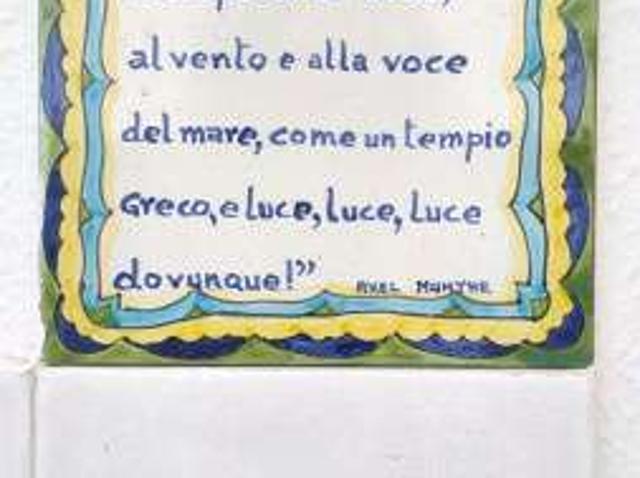 al vento e alla voce
del mare, come un tempio
Greco, e luce, luce, luce
dovunque!” AXEL MUNTHE